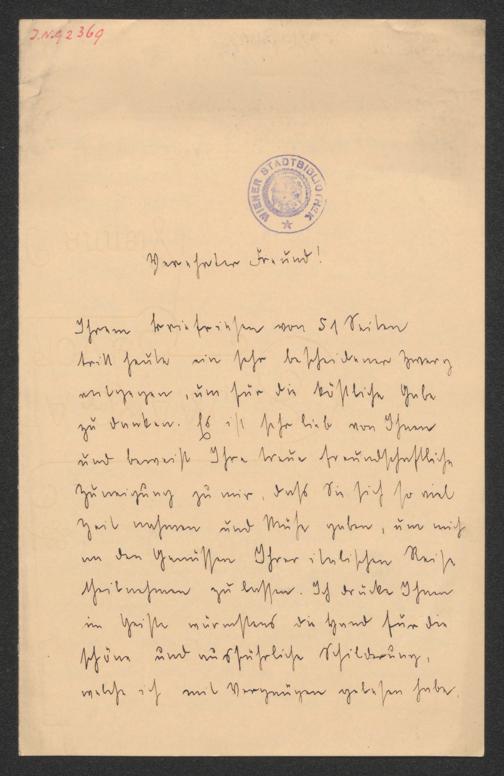 J.N. 92369
WIENER STADTBIBLIOTHEK
Verehrter Freund!
Ihrem Briefriesen von 51 Seiten
tritt heute ein sehr bescheidener Zwerg
entgegen, um für die köstliche Gabe
zu danken. Es ist sehr lieb von Ihnen
und beweist Ihre treue freundschaftliche
Zuneigung zu mir, daſs Sie sich so viel
Zeit nahmen und Mühe gaben, um mich
an den Genüssen Ihrer italischen Reise
theilnehmen zu lassen. Ich drücke Ihnen
im Geiste wärmstens die Hand für die
schöne und ausführliche Schilderung,
welche ich mit Vergnügen gelesen habe.